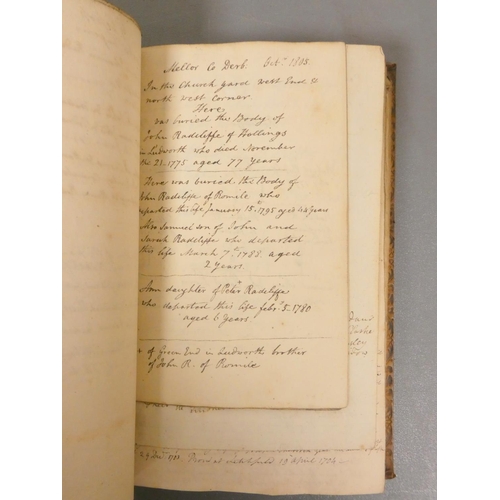 Mellor Co Derb. Octr. 1805
In the Church yard West End St
north west Corner.
Here
was buried the Body of
John Radcliffe of Hollings
in Ludworth who died November
the 21. 1775 aged 77 years
Here was buried the Body of
John Radcliffe of Romile who
departed this life January 15th 1795 aged years
Also Samuel son of John and
Sarah Radcliffe who departed
this life March 7th 1788 aged
2 years.
Ann daughter of Peter Radcliffe
who departed this life febr. 5. 1780
aged 6 years
of Green End in Ludworth brother
of John R. of Romile